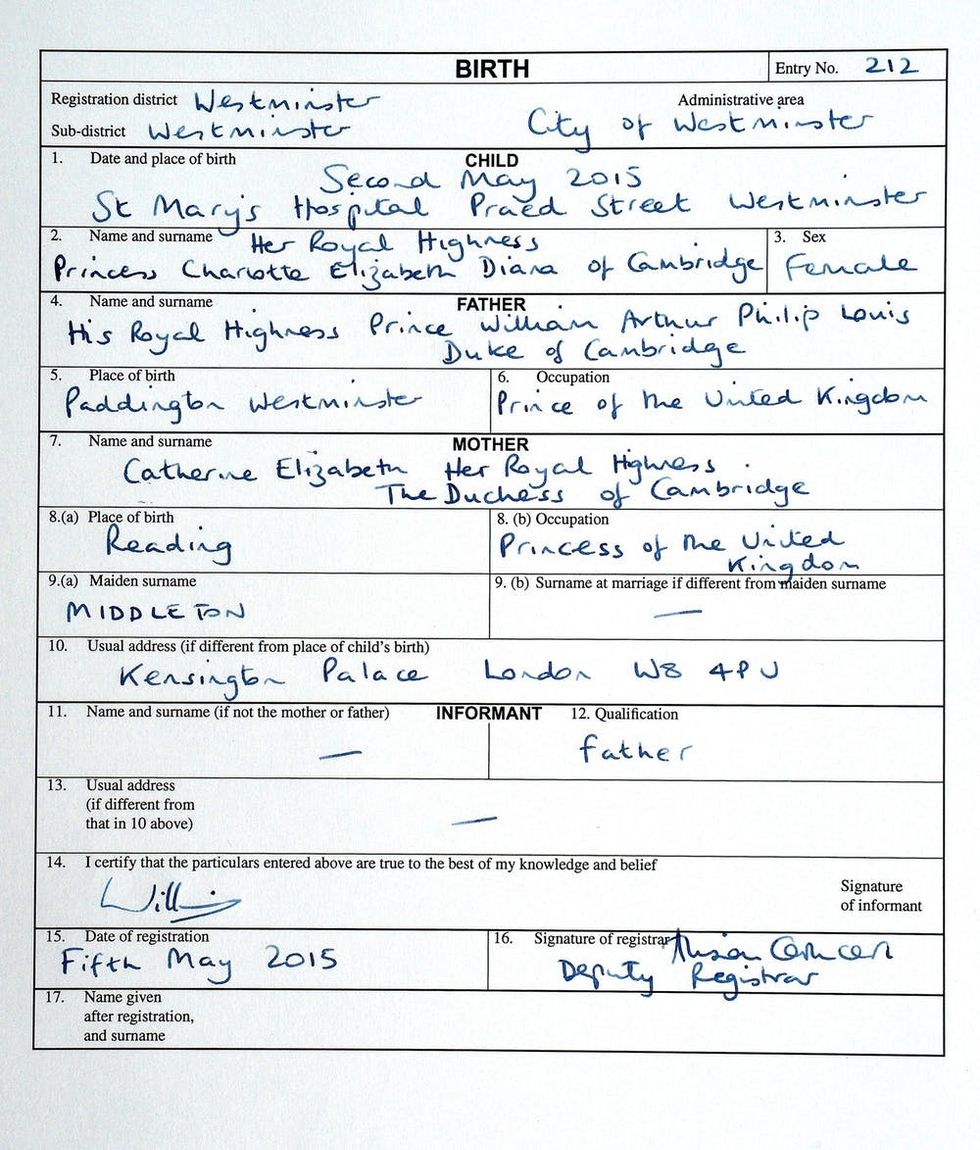 BIRTH
Entry No. 212
Registration district Westminster
Administrative area
Sub-district Westminster
City of Westminster
1. Date and place of birth
CHILD
Second May 2015
St Mary's Hospital Praed Street Westminster
2. Name and surname
Her Royal Highness
Princess Charlotte Elizabeth Diana of Cambridge
3. Sex
Female
4. Name and surname
FATHER
His Royal Highness Prince William Arthur Philip Louis
Duke of Cambridge
5. Place of birth
Paddington Westminster
6. Occupation
Prince of the United Kingdom
7. Name and surname
MOTHER
Catherine Elizabeth Her Royal Highness
The Duchess of Cambridge
8.(a) Place of birth
Reading
8. (b) Occupation
Princess of the United
Kingdom
9.(a) Maiden surname
MIDDLETON
9. (b) Surname at marriage if different from maiden surname
—
10. Usual address (if different from place of child's birth)
Kensington Palace London W8 4PU
11. Name and surname (if not the mother or father)
INFORMANT
—
12. Qualification
Father
13. Usual address
(if different from
that in 10 above)
—
14. I certify that the particulars entered above are true to the best of my knowledge and belief
William
Signature
of informant
15. Date of registration
Fifth May 2015
16. Signature of registrar
Deputy Registrar
17. Name given
after registration,
and surname